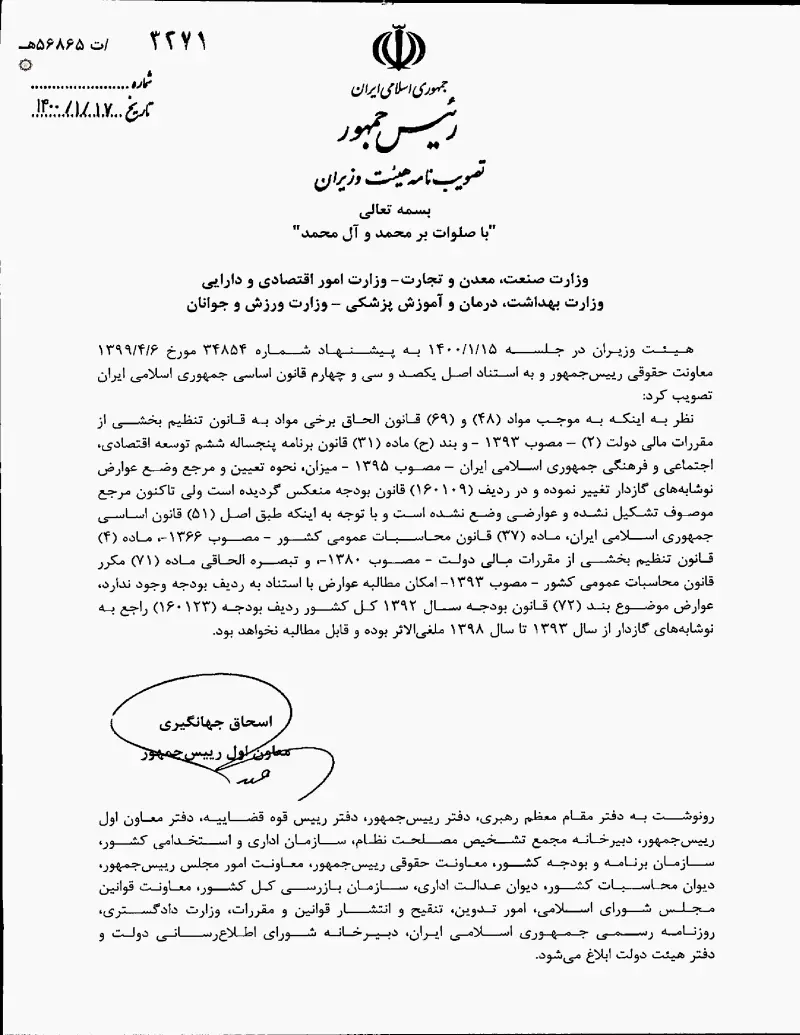 ۳۲۷۱ /ت ۵۶۸۶۵هـ
شماره
تاریخ ۱۴۰۰/۱/۱۷
جمهوری اسلامی ایران
رئیس جمهور
تصویب نامه هیئت وزیران
بسمه تعالی
"با صلوات بر محمد و آل محمد"
وزارت صنعت، معدن و تجارت- وزارت امور اقتصادی و دارایی
وزارت بهداشت، درمان و آموزش پزشکی – وزارت ورزش و جوانان
هیئت وزیران در جلسه ۱۴۰۰/۱/۱۵ به پیشنهاد شماره ۳۴۸۵۴ مورخ ۱۳۹۹/۴/۶
معاونت حقوقی رییس‌جمهور و به استناد اصل یکصد و سی و چهارم قانون اساسی جمهوری اسلامی ایران
تصویب کرد:
نظر به اینکه به موجب مواد (۴۸) و (۶۹) قانون الحاق برخی مواد به قانون تنظیم بخشی از
مقررات مالی دولت (۲) – مصوب ۱۳۹۳ - و بند (ح) ماده (۳۱) قانون برنامه پنجساله ششم توسعه اقتصادی،
اجتماعی و فرهنگی جمهوری اسلامی ایران – مصوب ۱۳۹۵ - میزان، نحوه تعیین و مرجع وضع عوارض
نوشابه‌های گازدار تغییر نموده و در ردیف (۱۶۰۱۰۹) قانون بودجه منعکس گردیده است ولی تاکنون مرجع
موصوف تشکیل نشده و عوارضی وضع نشده است و با توجه به اینکه طبق اصل (۵۱) قانون اساسی
جمهوری اسلامی ایران، ماده (۳۷) قانون محاسبات عمومی کشور – مصوب ۱۳۶۶-، ماده (۴)
قانون تنظیم بخشی از مقررات مالی دولت - مصوب ۱۳۸۰-، و تبصره الحاقی ماده (۷۱) مکرر
قانون محاسبات عمومی کشور - مصوب ۱۳۹۳- امکان مطالبه عوارض با استناد به ردیف بودجه وجود ندارد،
عوارض موضوع بند (۷۲) قانون بودجه سال ۱۳۹۲ کل کشور ردیف بودجه (۱۶۰۱۲۳) راجع به
نوشابه‌های گازدار از سال ۱۳۹۳ تا سال ۱۳۹۸ ملغی‌الاثر بوده و قابل مطالبه نخواهد بود.
اسحاق جهانگیری
معاون اول رییس‌جمهور
رونوشت به دفتر مقام معظم رهبری، دفتر رییس‌جمهور، دفتر رییس قوه قضاییه، دفتر معاون اول
رییس‌جمهور، دبیرخانه مجمع تشخیص مصلحت نظام، سازمان اداری و استخدامی کشور،
سازمان برنامه و بودجه کشور، معاونت حقوقی رییس‌جمهور، معاونت امور مجلس رییس‌جمهور،
دیوان محاسبات کشور، دیوان عدالت اداری، سازمان بازرسی کل کشور، معاونت قوانین
مجلس شورای اسلامی، امور تدوین، تنقیح و انتشار قوانین و مقررات، وزارت دادگستری،
روزنامه رسمی جمهوری اسلامی ایران، دبیرخانه شورای اطلاع‌رسانی دولت و
دفتر هیئت دولت ابلاغ می‌شود.